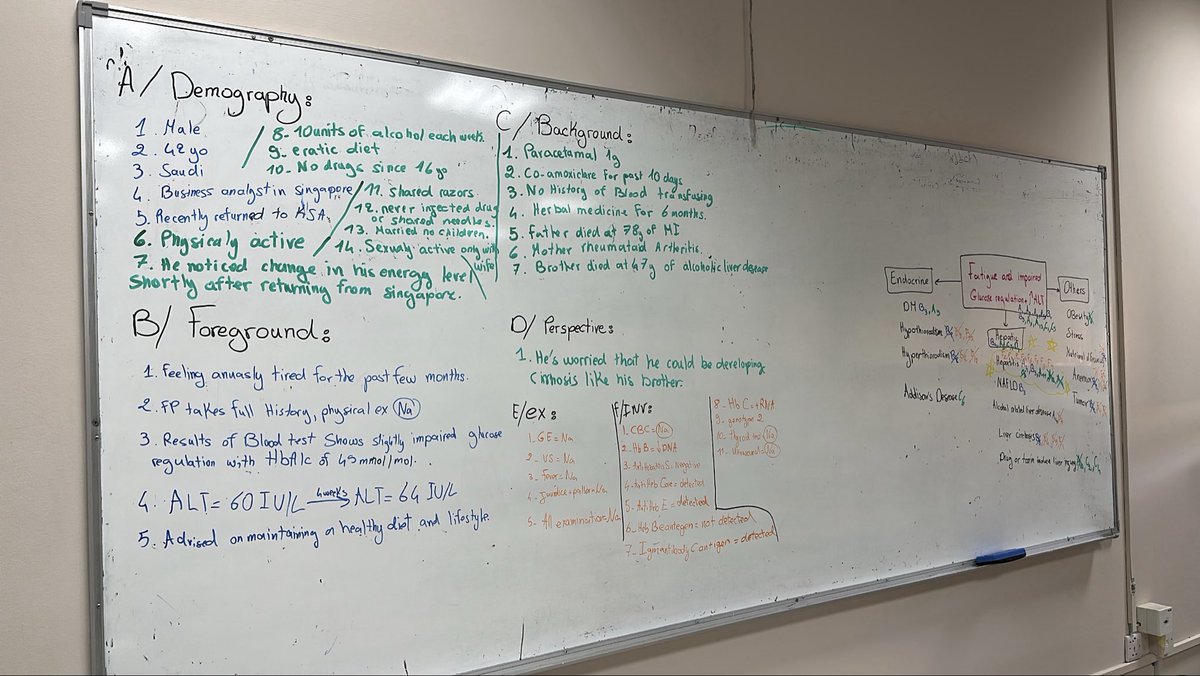 A/ Demography:
1. Male
2. 42 yo
3. Saudi
4. Business analyst in singapore
5. Recently returned to KSA.
6. Physicaly active
7. He noticed change in his energy level
shortly after returning from singapore.
8- 10 units of alcohol each week.
9- eratic diet
10- No drugs since 16 yo
11. shared razors.
12. never injected drug
or shared needles.
13. Married no children.
14. Sexualy active only with
wife
B/ Foreground:
1. Feeling anuasly tired for the past few months.
2. FP takes full History, physical ex Na
3. Results of Blood test Shows slightly impaired glucose
regulation with HbA1c of 43 mmol/mol.
4. ALT= 60 IU/L 4 weeks ALT= 64 IU/L
5. Advised on maintaining a healthy diet and lifestyle.
C/ Background:
1. Paracetamal 1g
2. Co-amoxiclare for past 10 days
3. No History of Blood transfusing
4. Herbal medicine for 6 months.
5. Father died at 78y of MI
6. Mother rheumatoid Arthritis.
7. Brother died at 47y of alcoholic liver disease
D/ Perspective:
1. He's worried that he could be developing
cirrhosis like his brother.
E/ex:
1- GE = Na
2- VS = Na
3- Fever = Na
5- All examination = Na
F/INV:
1. CBC = Na
2. Hb B = DNA
4- Anti Hb Core = detected
5- Anti Hb E = detected
6- Heb Be antegen = not detected
7- Igm antibody C antigen = detected
8- Hb C = +RNA
9- genotype 2
10- thyroid test Na
11- Na
Endocrine
Fatigue and impaired
Glucose regulation, ↑ALT
Others
DM
Hypothorodism
Hyperthorodism
Addison's Desease
Hepatic
Hepatitis
NAFLD
Alcohol related liver disease
Liver cirrhosis
Drug or toxin induce liver injury
Obesity
Stress
Anemia
Tumer